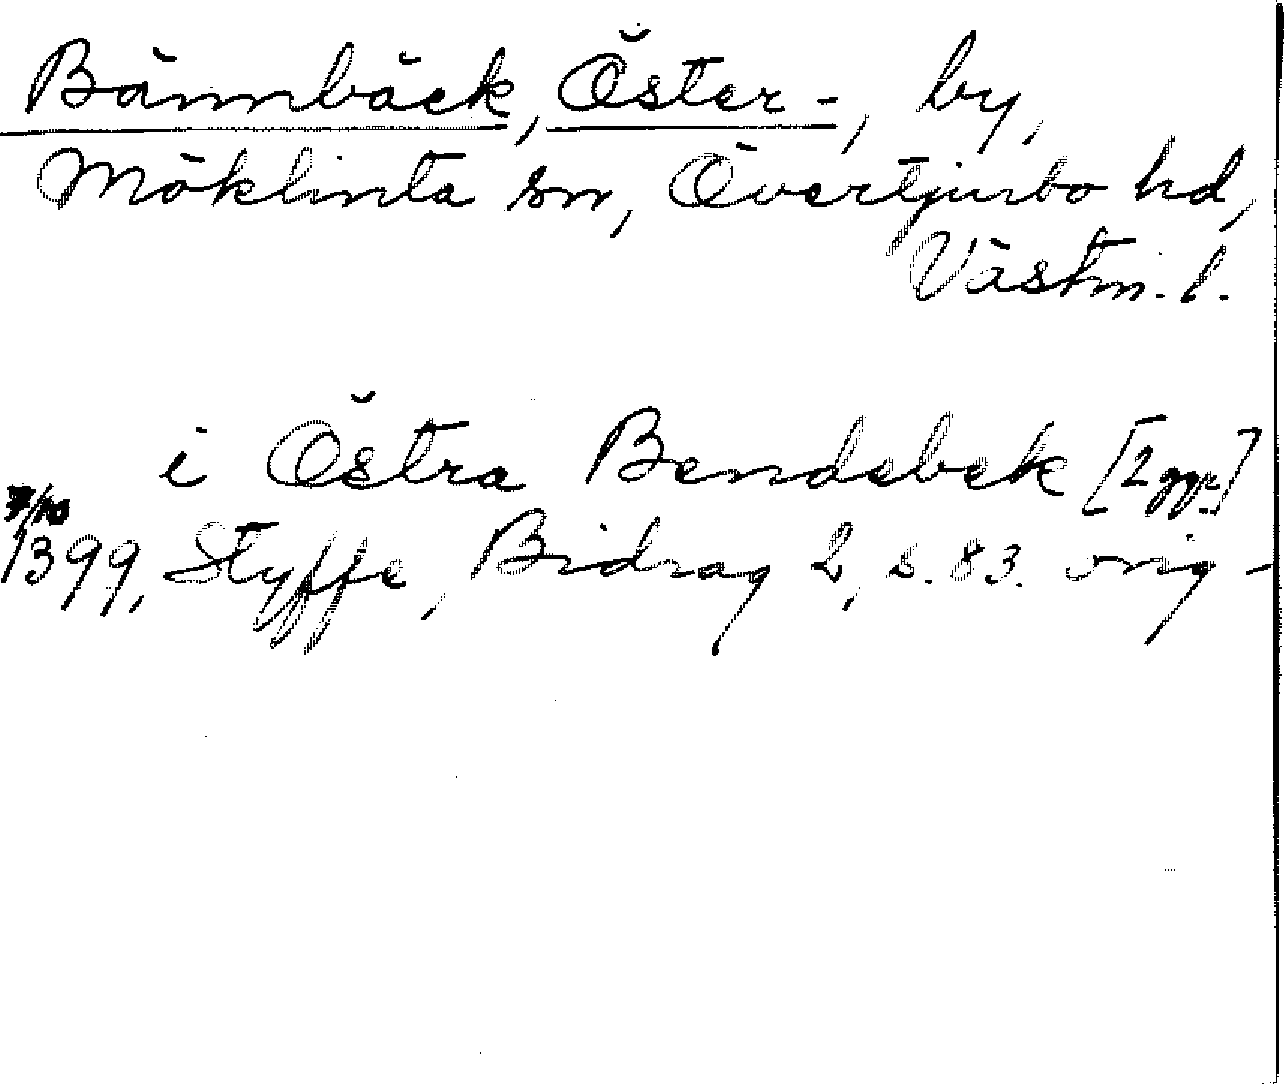 Bännbäck, Öster-, by,
Möklinta sn, Övertjurbo hd,
Västm. l.
i Östra Bendebek [2 ggr]
1399, Styffe, Bidrag 2, s. 83. orig-